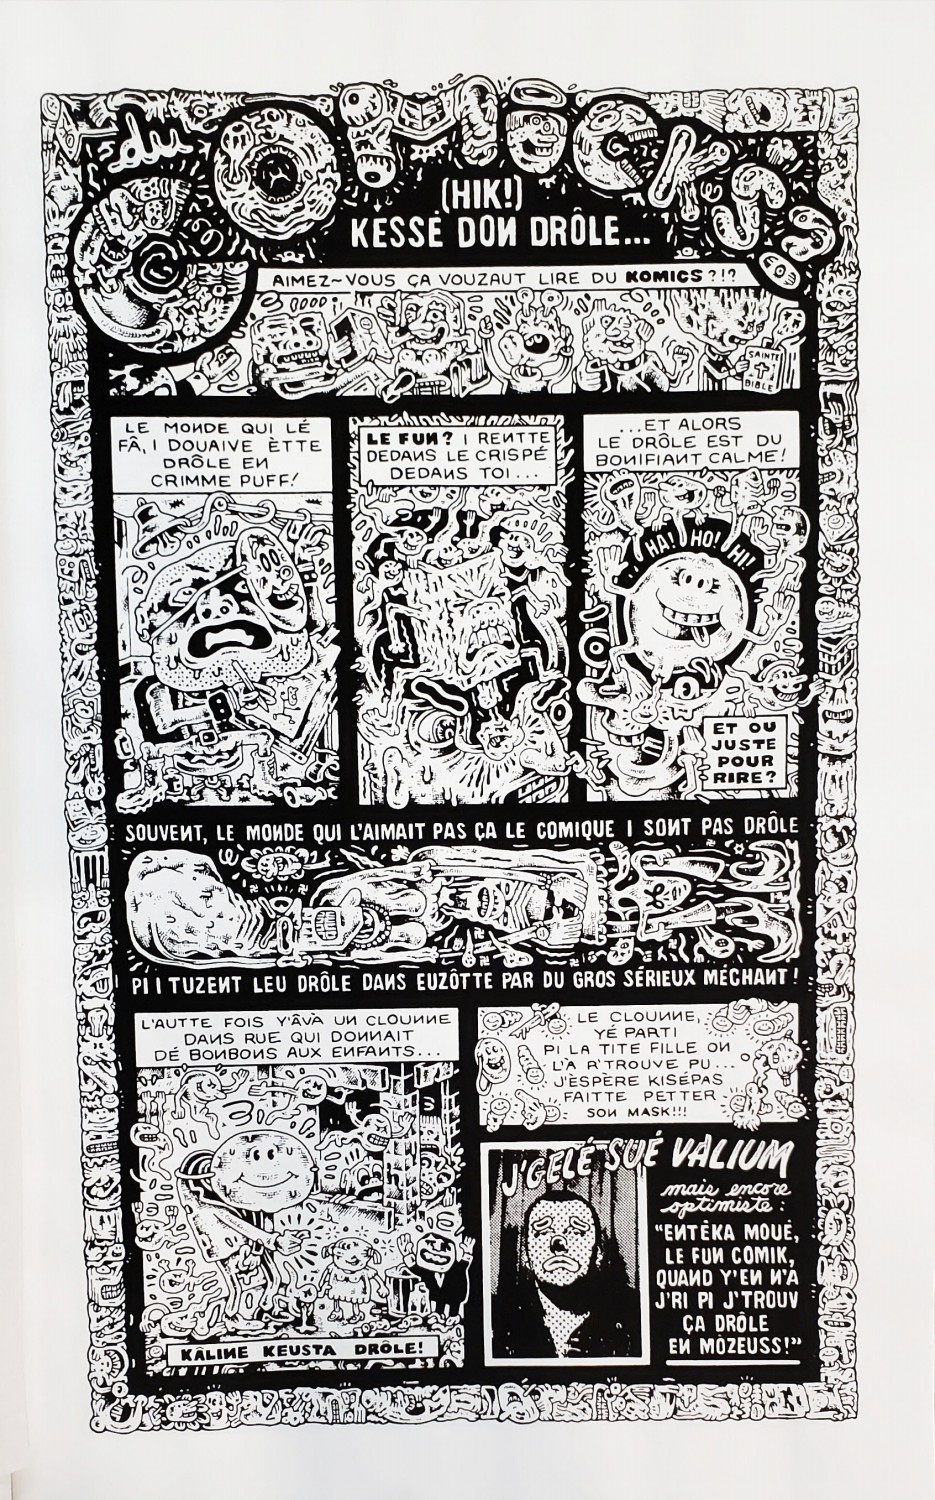 du
COMICKS
(HIK!)
KESSÉ DON DRÔLE...
AIMEZ-VOUS ÇA VOUZAUT LIRE DU KOMICS?!?
SAINTE
BIBLE
LE MONDE QUI LÉ
FÂ, I DOUAIVE ÈTTE
DRÔLE EN
CRIMME PUFF!
LE FUN? I RENTTE
DEDANS LE CRISPÉ
DEDANS TOI...
...ET ALORS
LE DRÔLE EST DU
BONIFIANT CALME!
HA! HO! HI!
ET OU
JUSTE
POUR
RIRE?
SOUVENT, LE MONDE QUI L'AIMAIT PAS ÇA LE COMIQUE I SONT PAS DRÔLE
PI I TUZENT LEU DRÔLE DANS EUZÔTTE PAR DU GROS SÉRIEUX MÉCHANT!
L'AUTTE FOIS Y'ÂVÀ UN CLOUNNE
DANS RUE QUI DONNAIT
DÉ BONBONS AUX ENFANTS...
KÂLINE KEUSTA DRÔLE!
LE CLOUNNE,
YÉ PARTI
PI LA TITE FILLE ON
L'A R'TROUVE PU...
J'ÈSPÈRE KISÉPAS
FAITTE PETTER
SON MASK!!!
J'GELÉ SUÉ VALIUM
mais encore
optimiste:
"ENTÉKA MOUÉ,
LE FUN COMIK,
QUAND Y'EN N'A
J'RI PI J'TROUV
ÇA DRÔLE
EN MÔZEUSS!"